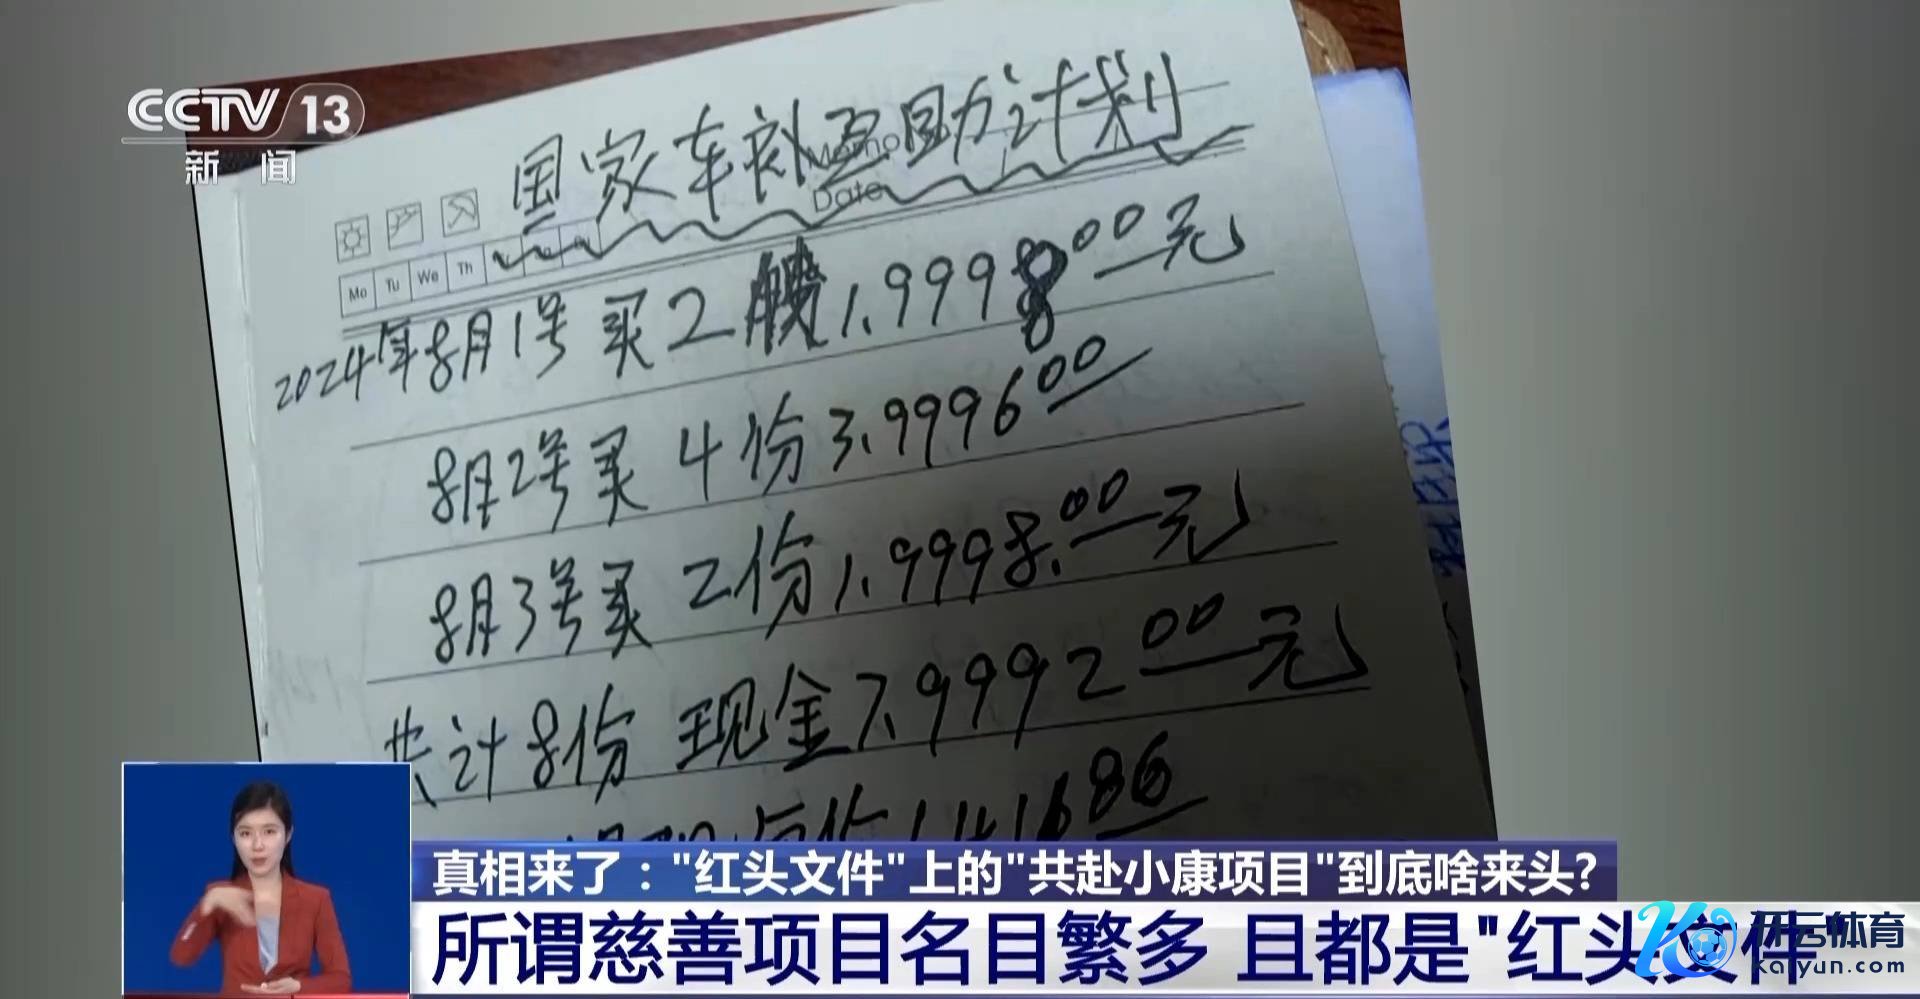 CCTV 13
新闻
国家车刹互助计划
Memo
Date
Mo Tu We Th
2024年8月1号买2艘1.9998.00元
8月2号买4份3.9996.00
8月3号买2份1.9998.00元
共计8份 现金7.9992.00元
真相来了："红头文件"上的"共赴小康项目"到底啥来头?
所谓慈善项目名目繁多 且都是"红头文件"
开云体育
Kaiyun.com